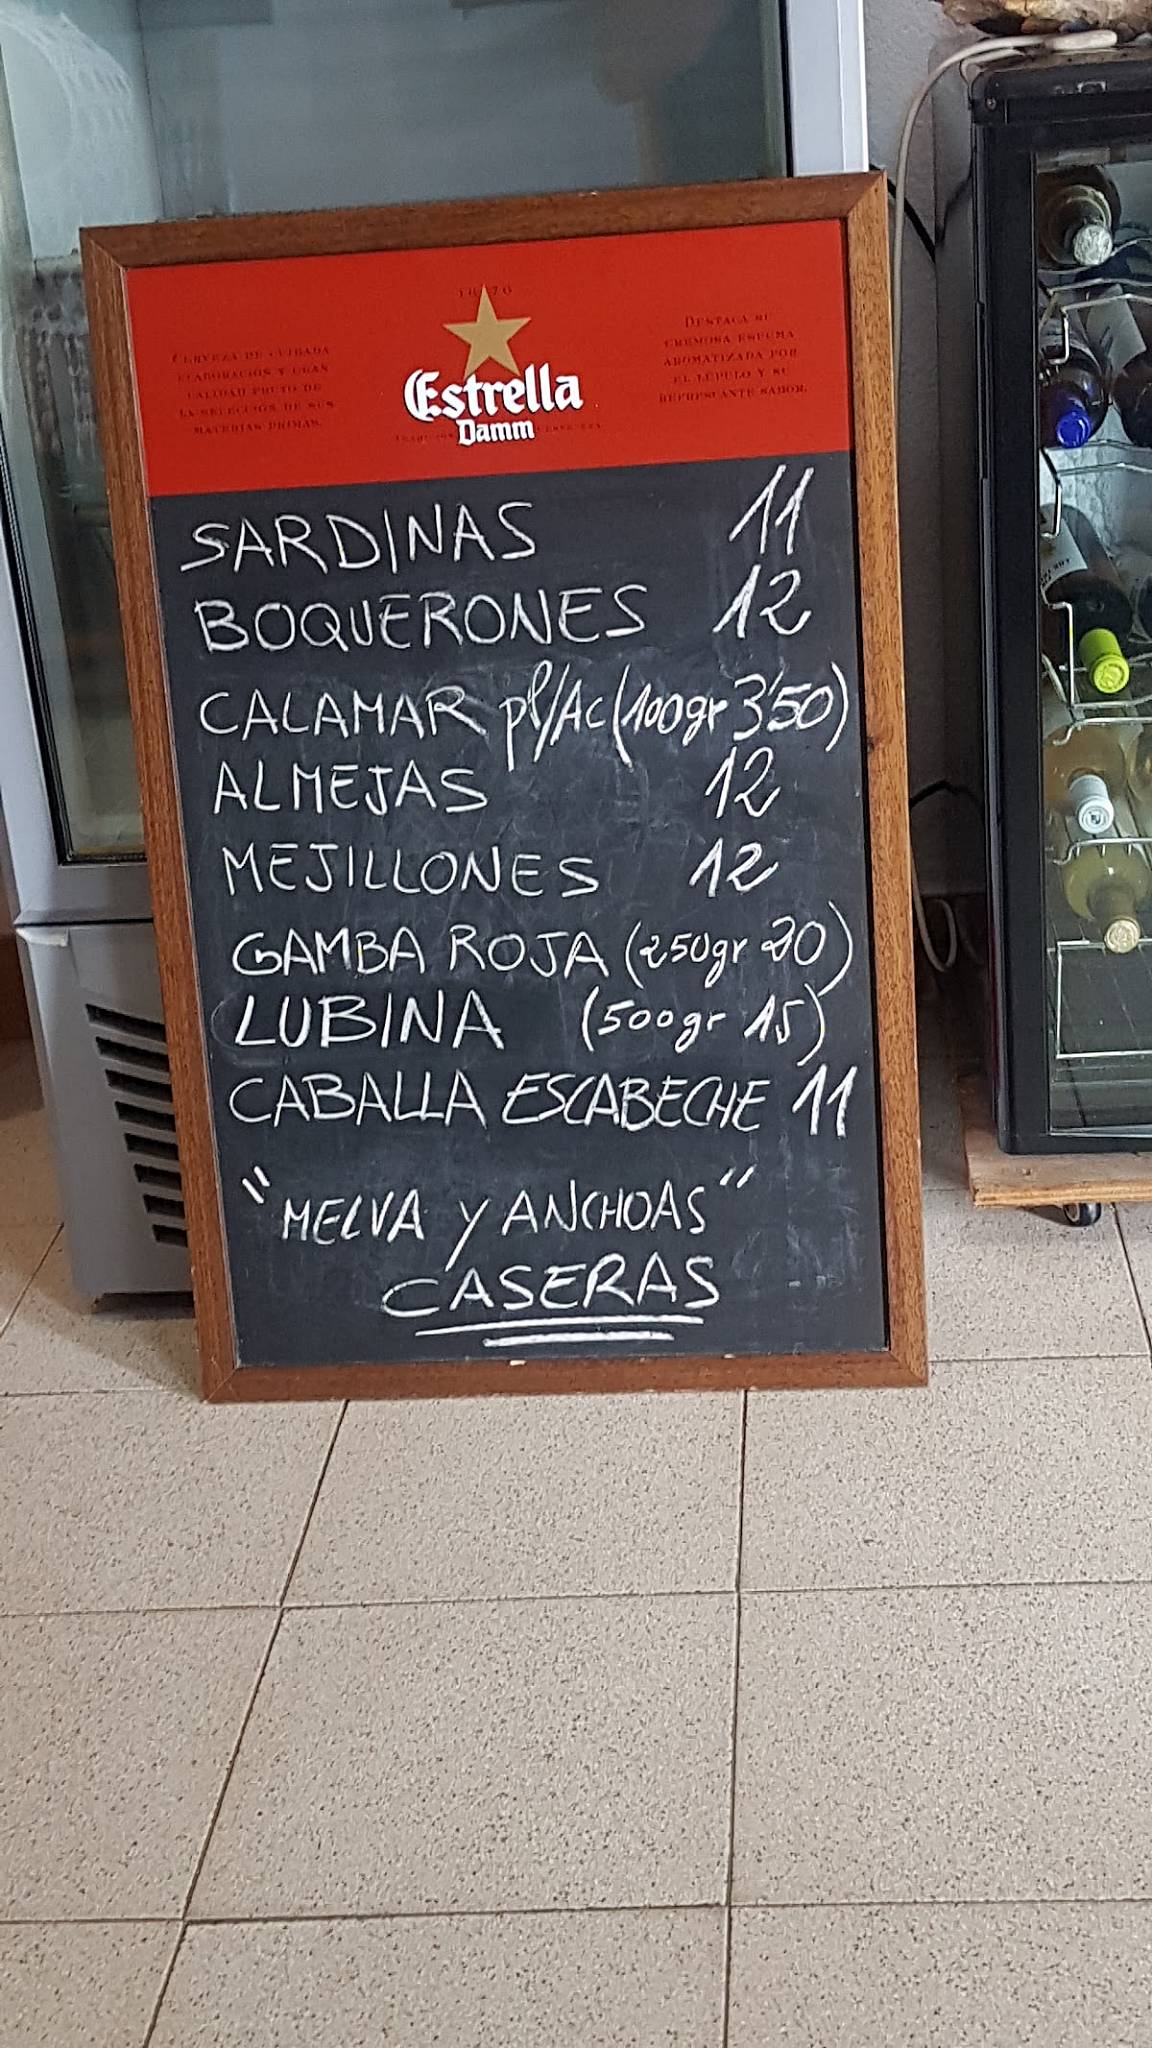 1876
Estrella
Damm
CERVEZA DE CUIDADA
ELABORACIÓN Y GRAN
CALIDAD FRUTO DE
LA SELECCIÓN DE SUS
MATERIAS PRIMAS.
DESTACA SU
CREMOSA ESPUMA
AROMATIZADA POR
EL LÚPULO Y SU
REFRESCANTE SABOR.
SARDINAS 11
BOQUERONES 12
CALAMAR pl/Ac (100gr 3'50)
ALMEJAS 12
MEJILLONES 12
GAMBA ROJA (250gr 20)
LUBINA (500gr 15)
CABALLA ESCABECHE 11
"MELVA Y ANCHOAS"
CASERAS